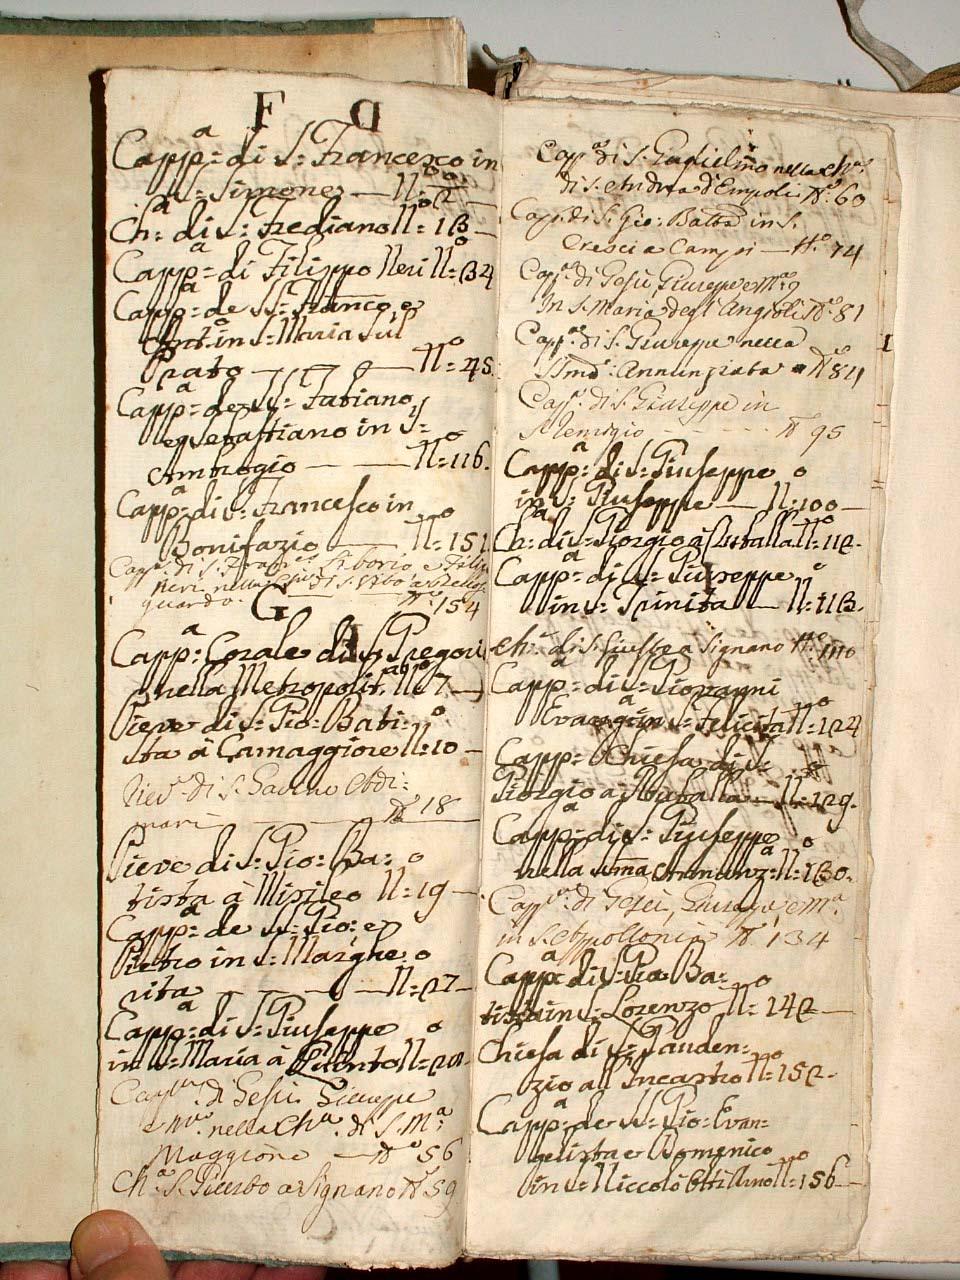 F
Capp:a di S: Francesco in
S: Simone — N:o 2
Ch:a di S: Frediano N:o 13
Capp:a di Filippo Neri N:o 34
Capp:a de SS: Franco, e
Ant:o in S: Maria sul
Prato N:o 45
Capp:a de SS: Fabiano,
e Sebastiano in S:
Ambrogio — N:o 116.
Capp:a di S: Francesco in
Bonifazio — N:o 151
Capp.a di S. Liborio e Filip
Neri nella di S. Vito a Bellos
guardo. N.o 154
G
Capp:a Corale di S: Gregori
nella Metropolit:na N:o 7
Pieve di S: Gio: Bati:
sta à Camaggiore N:o 10
Piev.e di S. Gavino Adi:
mari — N.o 18
Pieve di S: Gio: Ba:
tista à Misileo N:o 19
Capp:a de SS: Gio: e
Pietro in S: Marghe
rita — N:o 27
Capp:a di S: Giuseppe
in S: Maria à N:o
Capp.na di Gesù Giuseppe
e M.a nella Ch.a di S. M.a
Maggiore — N.o 56
Ch.a S. Giusto a Signano N.o 59
Capp.a di S. nella Ch.a
di S. Andrea d'Empoli N.o 60
Capp. di S. Gio: Batta in S.
Cresci a Campi — N.o 74
Capp.a di Gesù Giuseppe e M.a
In S. Maria degl'Angioli N.o 81
Capp.a di S. Giuseppe nella
SSma: Annunziata N.o 84
Capp.a di S. Giuseppe in
S. Remigio N.o 95
Capp:a di S: Giuseppe
in S: Giuseppe — N:o 100
Ch:a di S: Giorgio à N:o 112
Capp:a di S: Giuseppe
in S: Trinita — N:o 113.
Ch.a di S. Giusto a Signano N.o
Capp:a di S: Giovanni
Evang: in S: Felicita N:o 124
Capp:a Chiesa di S:
Giorgio a N:o 129.
Capp:a di S: Giuseppe
nella SSma Annunz:a N:o 130.
Capp.a di Gesù, Giuseppe e M.a
in S. Appollonia N.o 134
Capp:a di S: Gio: Ba:
tista in S: Lorenzo N:o 142
Chiesa di S: Gauden:
zio all'Incastro N:o 152
Capp:a de SS: Gio: Evan:
gelista e Domenico
in S: Niccolò Olt'Arno N:o 156